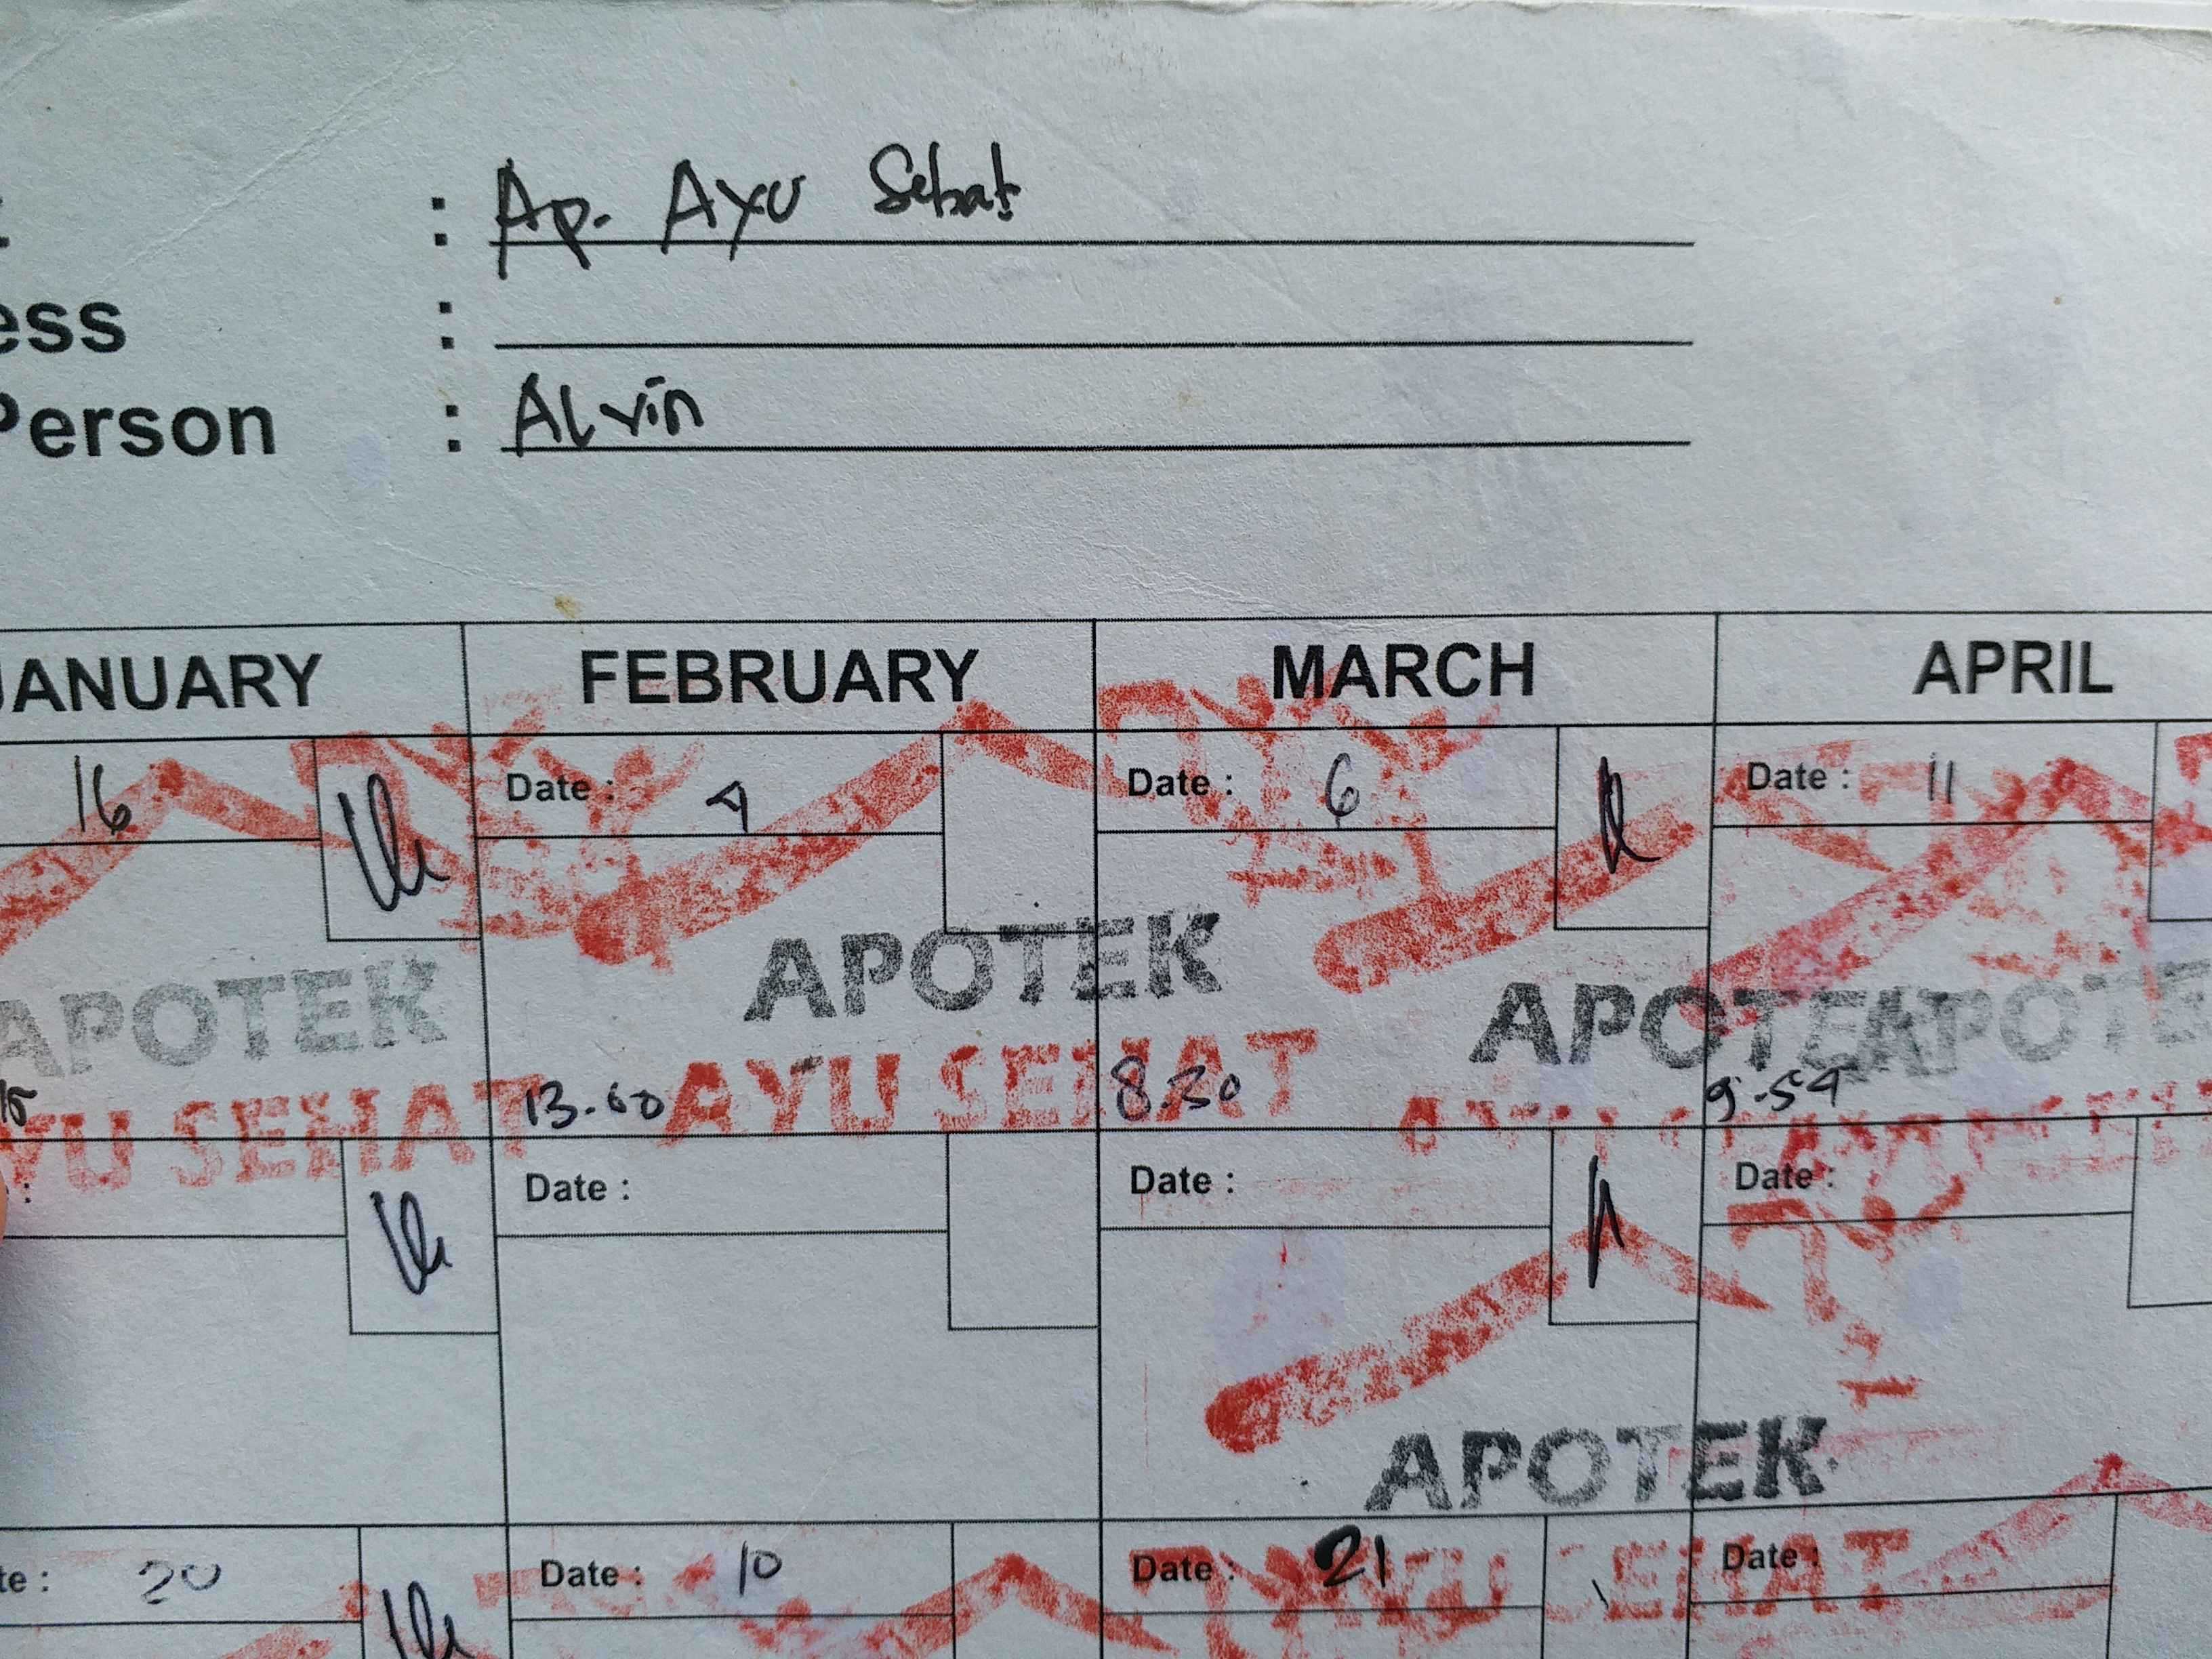 : Ap. Ayu Sehat
ess :
Person : Alvin
JANUARY FEBRUARY MARCH APRIL
16 Date : 4 Date : 6 Date : 11
APOTEK APOTEK APOTEK APOTE
YU SEHAT 13.00 AYU SEHAT 8.30 9.54
: Date : Date : Date :
APOTEK
te : 20 Date : 10 Date : 21 AYU SEHAT Date :